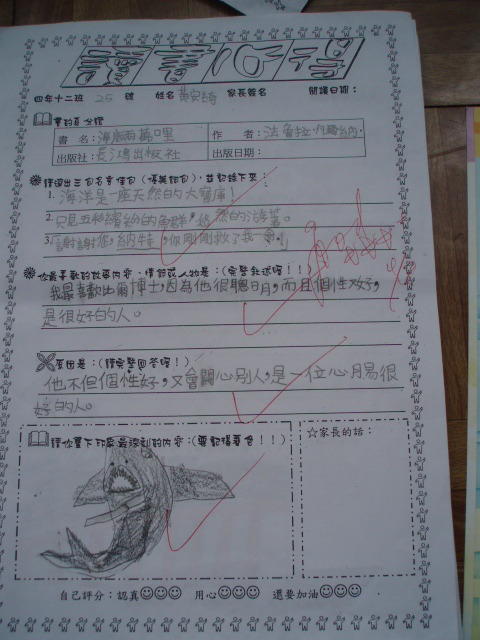 讀書心得
四年十二班 25 號 姓名 黃安琦 家長簽名 閱讀日期：
書名：海底兩萬哩 作者：法魯拉．
出版社：長鴻出版社 出版日期：
請選出三句名言佳句（優美詞句），並記錄下來：
1. 海洋是一座天然的大寶庫！
2. 只見五彩繽紛的魚群，悠然的游著。
3. 謝謝您，納特，你剛剛救了我一命！
你最喜歡的故事內容、情節或人物是：（完整敘述喔！！）
我最喜歡比爾博士，因為他很聰明，而且個性又好，
是很好的人。
原因是：（請完整回答喔！）
他不但個性好，又會關心別人，是一位心腸很
好的人。
請你畫下印象最深刻的內容：（要記得著色！！）
☆家長的話：
自己評分：認真☺☺☺ 用心☺☺☺ 還要加油☺☺☺